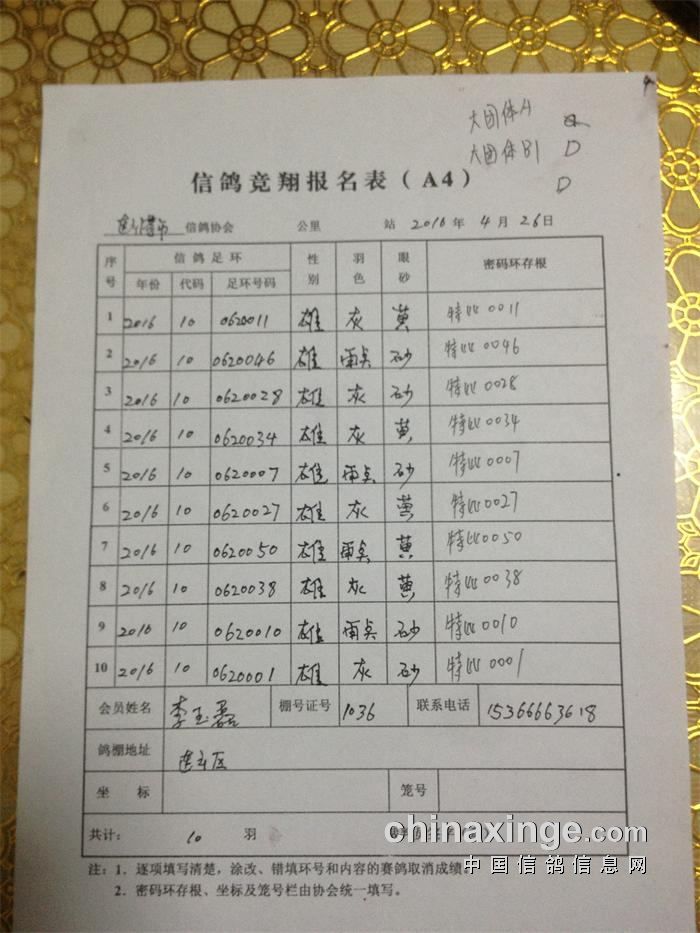 大团体A
大团体B1 D
D
信鸽竞翔报名表（A4）
信鸽协会 公里 站 2016年 4月 26日
序号 信鸽足环 性别 羽色 眼砂 密码环存根
年份 代码 足环号码
1 2016 10 0620011 雄 灰 黄 特比0011
2 2016 10 0620046 雄 雨点 砂 特比0046
3 2016 10 0620028 雄 灰 砂 特比0028
4 2016 10 0620034 雄 灰 黄 特比0034
5 2016 10 0620007 雄 雨点 砂 特比0007
6 2016 10 0620027 雄 灰 黄 特比0027
7 2016 10 0620050 雄 雨点 黄 特比0050
8 2016 10 0620038 雄 灰 黄 特比0038
9 2016 10 0620010 雄 雨点 砂 特比0010
10 2016 10 0620001 雄 灰 砂 特比0001
会员姓名 李玉磊 棚号证号 1036 联系电话 15366663618
鸽棚地址
坐标 笼号
共计： 10 羽
chinaxinge.com
中国信鸽信息网
注：1．逐项填写清楚，涂改、错填环号和内容的赛鸽取消成绩。
2．密码环存根、坐标及笼号栏由协会统一填写。